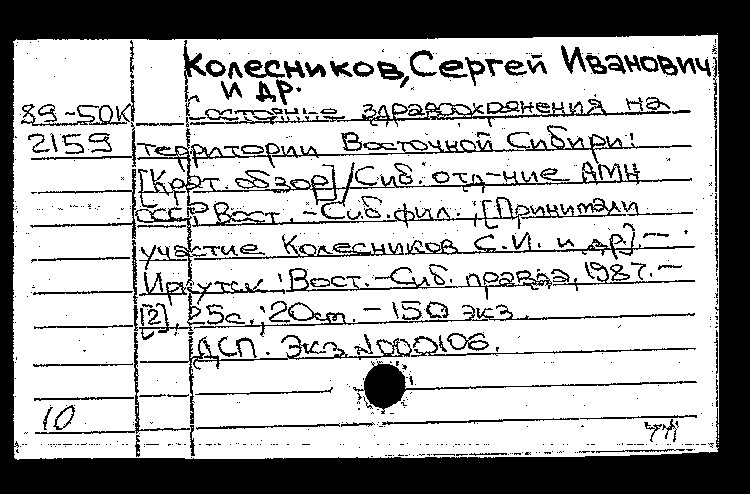 Колесников, Сергей Иванович
и др.
89-50К Состояние здравоохранения на
2159 территории Восточной Сибири:
[Крат. обзор] / Сиб. отд-ние АМН
СССР Вост.-Сиб. фил.; [Принимали
участие Колесников С.И. и др.]. —
Иркутск: Вост.-Сиб. правда, 1987. —
[2], 25с.; 20см. – 150 экз.
ДСП. Экз. N000106.
10